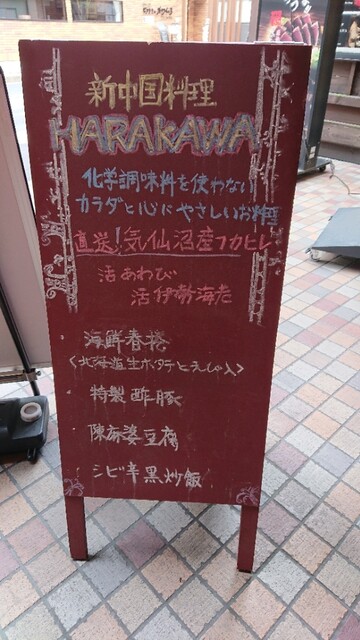 新中国料理
HARAKAWA
化学調味料を使わない
カラダと心にやさしいお料理
直送!気仙沼産フカヒレ
活あわび
活伊勢海老
海鮮春捲
<北海道生ホタテとえび入>
特製酢豚
陳麻婆豆腐
シビ辛黒炒飯